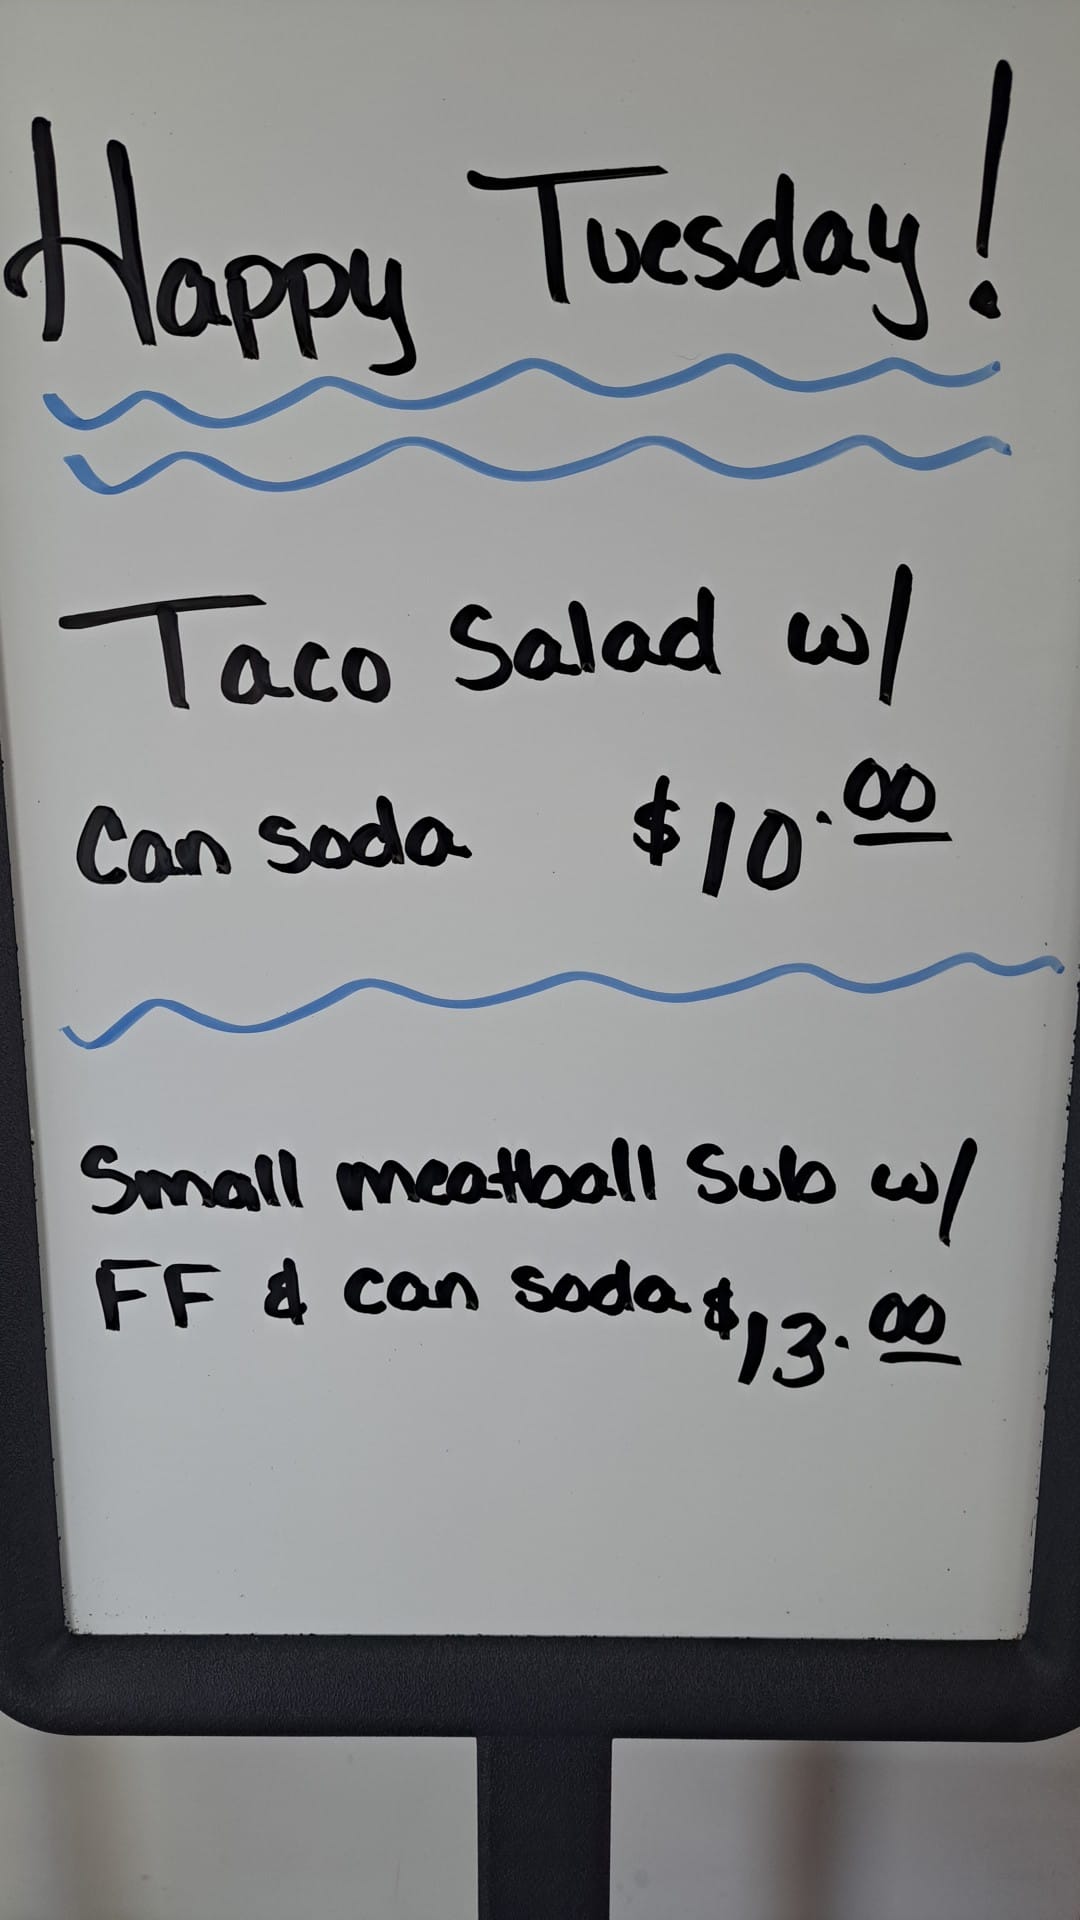 Happy Tuesday!
Taco Salad w/
Can soda $10.00
Small meatball Sub w/
FF & can soda $13.00